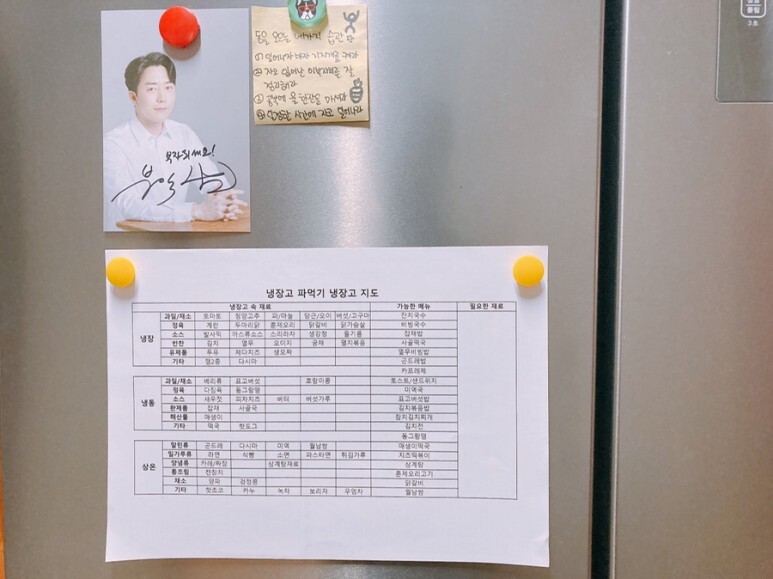 부자되세요!
매일 오늘 네가지 습관
냉장고 파먹기 냉장고 지도
냉장고 속 재료 가능한 메뉴 필요한 재료
냉장 과일/채소 토마토 청양고추 파/마늘 당근/오이 버섯/고구마 잔치국수
정육 계란 두마리닭 훈제오리 닭갈비 닭가슴살 비빔국수
소스 발사믹 까스류소스 스리라차 생강청 들기름 잡채밥
반찬 김치 열무 오이지 궁채 멸치볶음 사골떡국
유제품 두유 체다치즈 생모짜 열무비빔밥
기타 잼2종 다시마 곤드레밥
카프레제
냉동 과일/채소 베리류 표고버섯 호랑이콩 토스트/샌드위치
정육 다짐육 동그랑땡 미역국
소스 새우젓 피자치즈 버터 버섯가루 표고버섯밥
완제품 잡채 사골국 김치볶음밥
해산물 매생이 참치김치찌개
기타 떡국 핫도그 김치전
동그랑땡
실온 말린류 곤드레 다시마 미역 월남쌈 매생이떡국
밀가루류 라면 식빵 소면 파스타면 튀김가루 치즈떡볶이
양념류 카레/짜장 삼계탕재료 삼계탕
통조림 캔참치 훈제오리고기
채소 양파 검정콩 닭갈비
기타 핫초코 카누 녹차 보리차 우엉차 월남쌈
3초